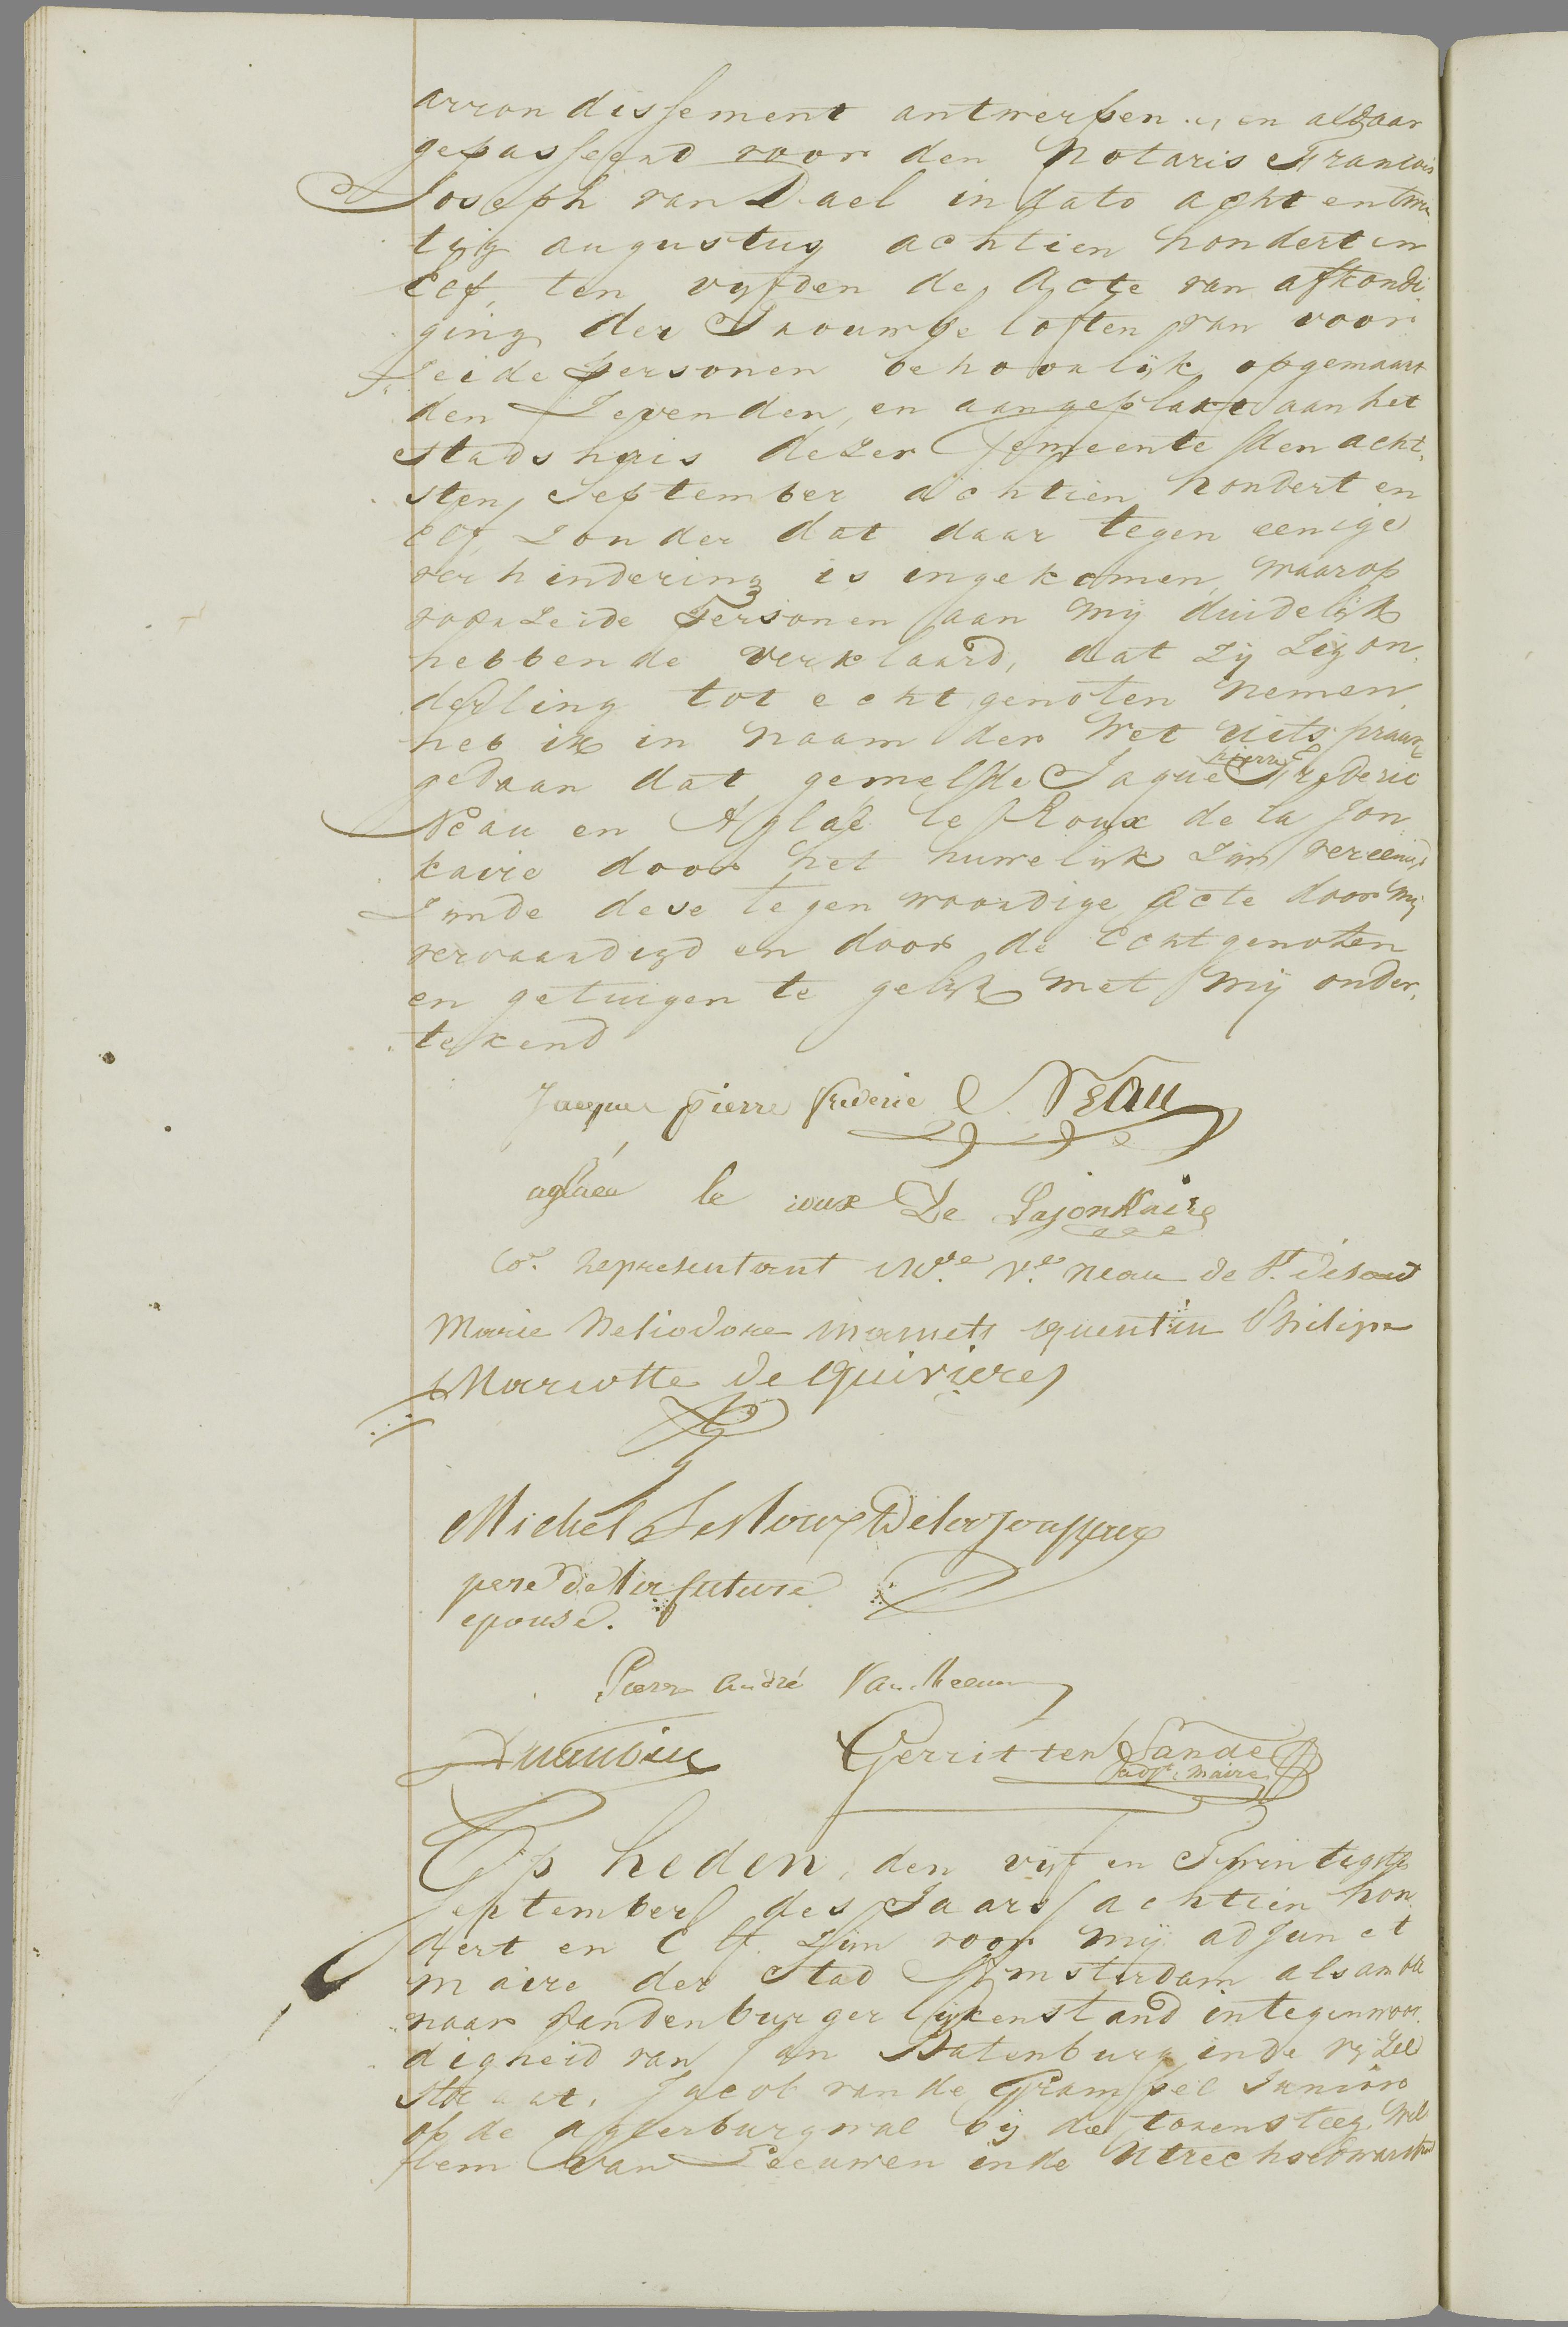 arrondissement antwerpen en aldaar
gepasseerd voor den Notaris Francois
Joseph van Dael in dato acht en twin
tig augustus achtien hondert en
Elf, ten vyfden de Acte van afkondi
ging der Trouwbeloften van voor
seide personen behoorlijk opgemaakt
den Sevenden, en aangeplakt aan het
stadshuis dezer Gemeente den acht
sten September achtien hondert en
Elf, zonder dat daar tegen eenige
verhindering is ingekomen, waarop
voorzeide Personen aan mij duidelijk
hebbende verklaard, dat zij bijzon
derling tot echtgenoten nemen
heb ik in naam der Wet uitspraak
gedaan dat gemelde Jaque pierre Frederic
Neau en Aglaë le Roux de la Jon
kaire door het huwelijk zijn vereenigd
zijnde dese tegenwoordige Acte door mij
vervaardigd en door de Echtgenoten
en getuigen te gelijk met mij onder
tekend
Jacques pierre frederic Neau
aglaée le roux De Lajonkaire
co. Representant Md.e V.e neau de St.
Marie heliodore mamets quentin Philipe
Marcotte de Quivieres
Michel Le Roux Dela Jonkaire
pere de la future
epouse.
Pierre André Van
Gerrit ten Sande
adjt. Maire
Op heden, den vijf en Twintigste
September des Jaars achtien hon
dert en Elf. zijn voor mij adjunct
maire der Stad Amsterdam als amte
naar van den burgerlijken stand in tegenwoor
digheid van Jan Batenburg in de
straat, Jacob van de Grampel Junior
op de agterburgwal bij de torensteeg, Wil
lem van Leeuwen in de Utrechsedwarstra